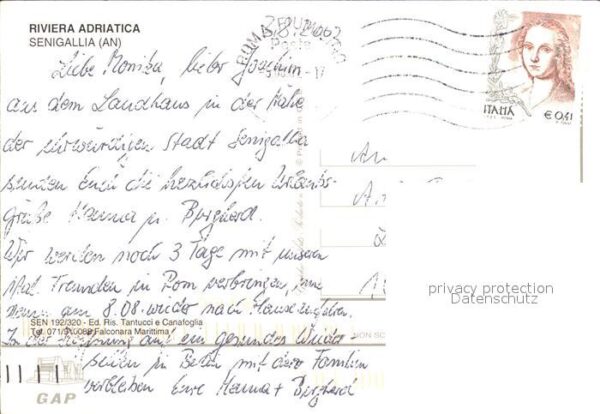 RIVIERA ADRIATICA
SENIGALLIA (AN)
2002
ROMA
Poste
ITALIA
€ 0,41
Liebe Monika, lieber Joachim
aus dem Landhaus in der Nähe
der ehrwürdigen Stadt Senigallia
senden Euch die herzlichsten Urlaubs-
Grüße Hanna u. Burghard.
Wir werden noch 3 Tage mit unseren
ital. Freunden in Rom verbringen,
am 8.08. wieder nach Hause
SEN 192/320 - Ed. Ris. Tantucci e Canafoglia
Tel. 071/ Falconara Marittima
In der Hoffnung auf ein gesundes Wieder-
sehen in Berlin mit den Familien
verbleiben Eure Hanna + Burghard
GAP
NON SC
privacy protection
Datenschutz